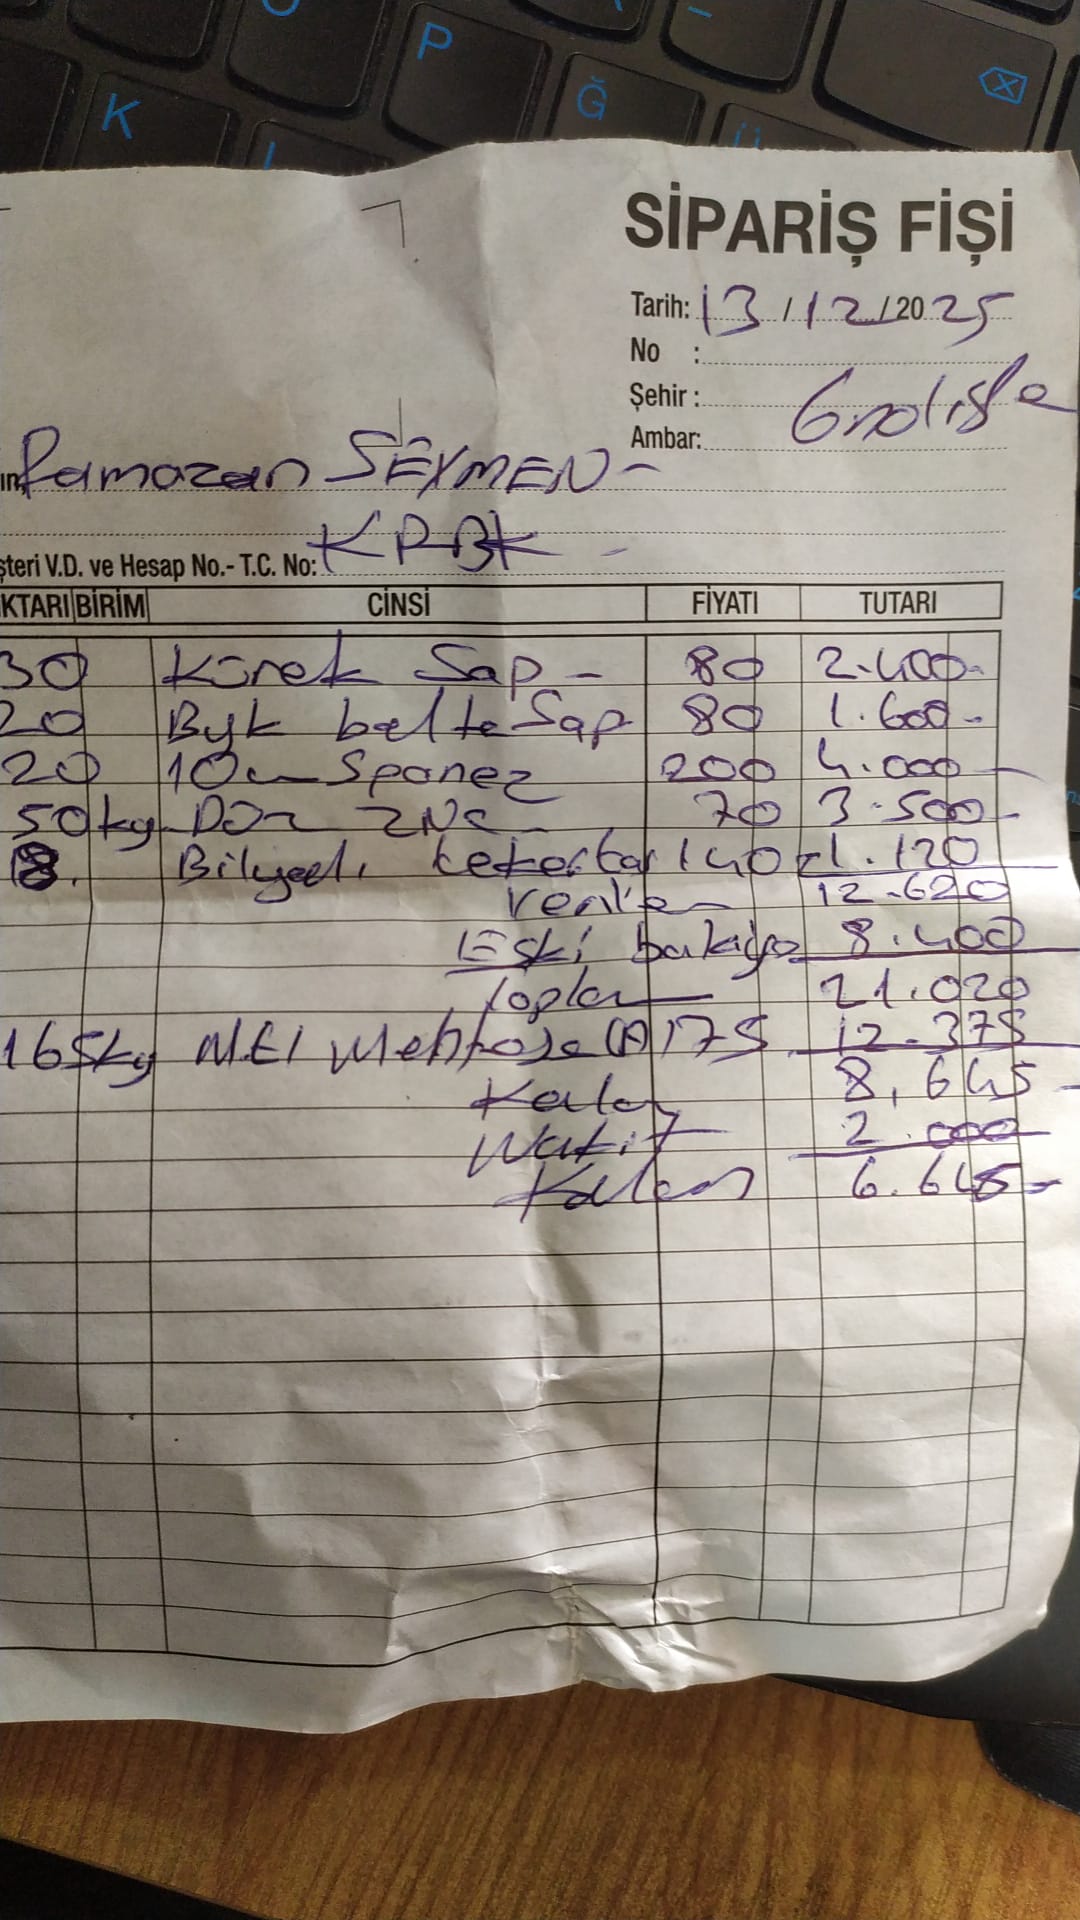 SİPARİŞ FİŞİ
Tarih: 13 / 12 / 20 25
No :
Şehir :
Ambar:
Ramazan SEYMEN -
KRBK -
şteri V.D. ve Hesap No.- T.C. No:
KTARI BİRİM CİNSİ FİYATI TUTARI
30 Kürek Sap - 80 2.400-
20 Byk balta Sap 80 1.600-
20 10 200 4.000-
50 kg 70 3.500-
8. Bilyalı 140 1.120
verilen 12.620
Eski bakiye 8.400
Toplam 21.020
165kg 75 12.375
Kalan 8.645
Nakit 2.000
Kalan 6.645-